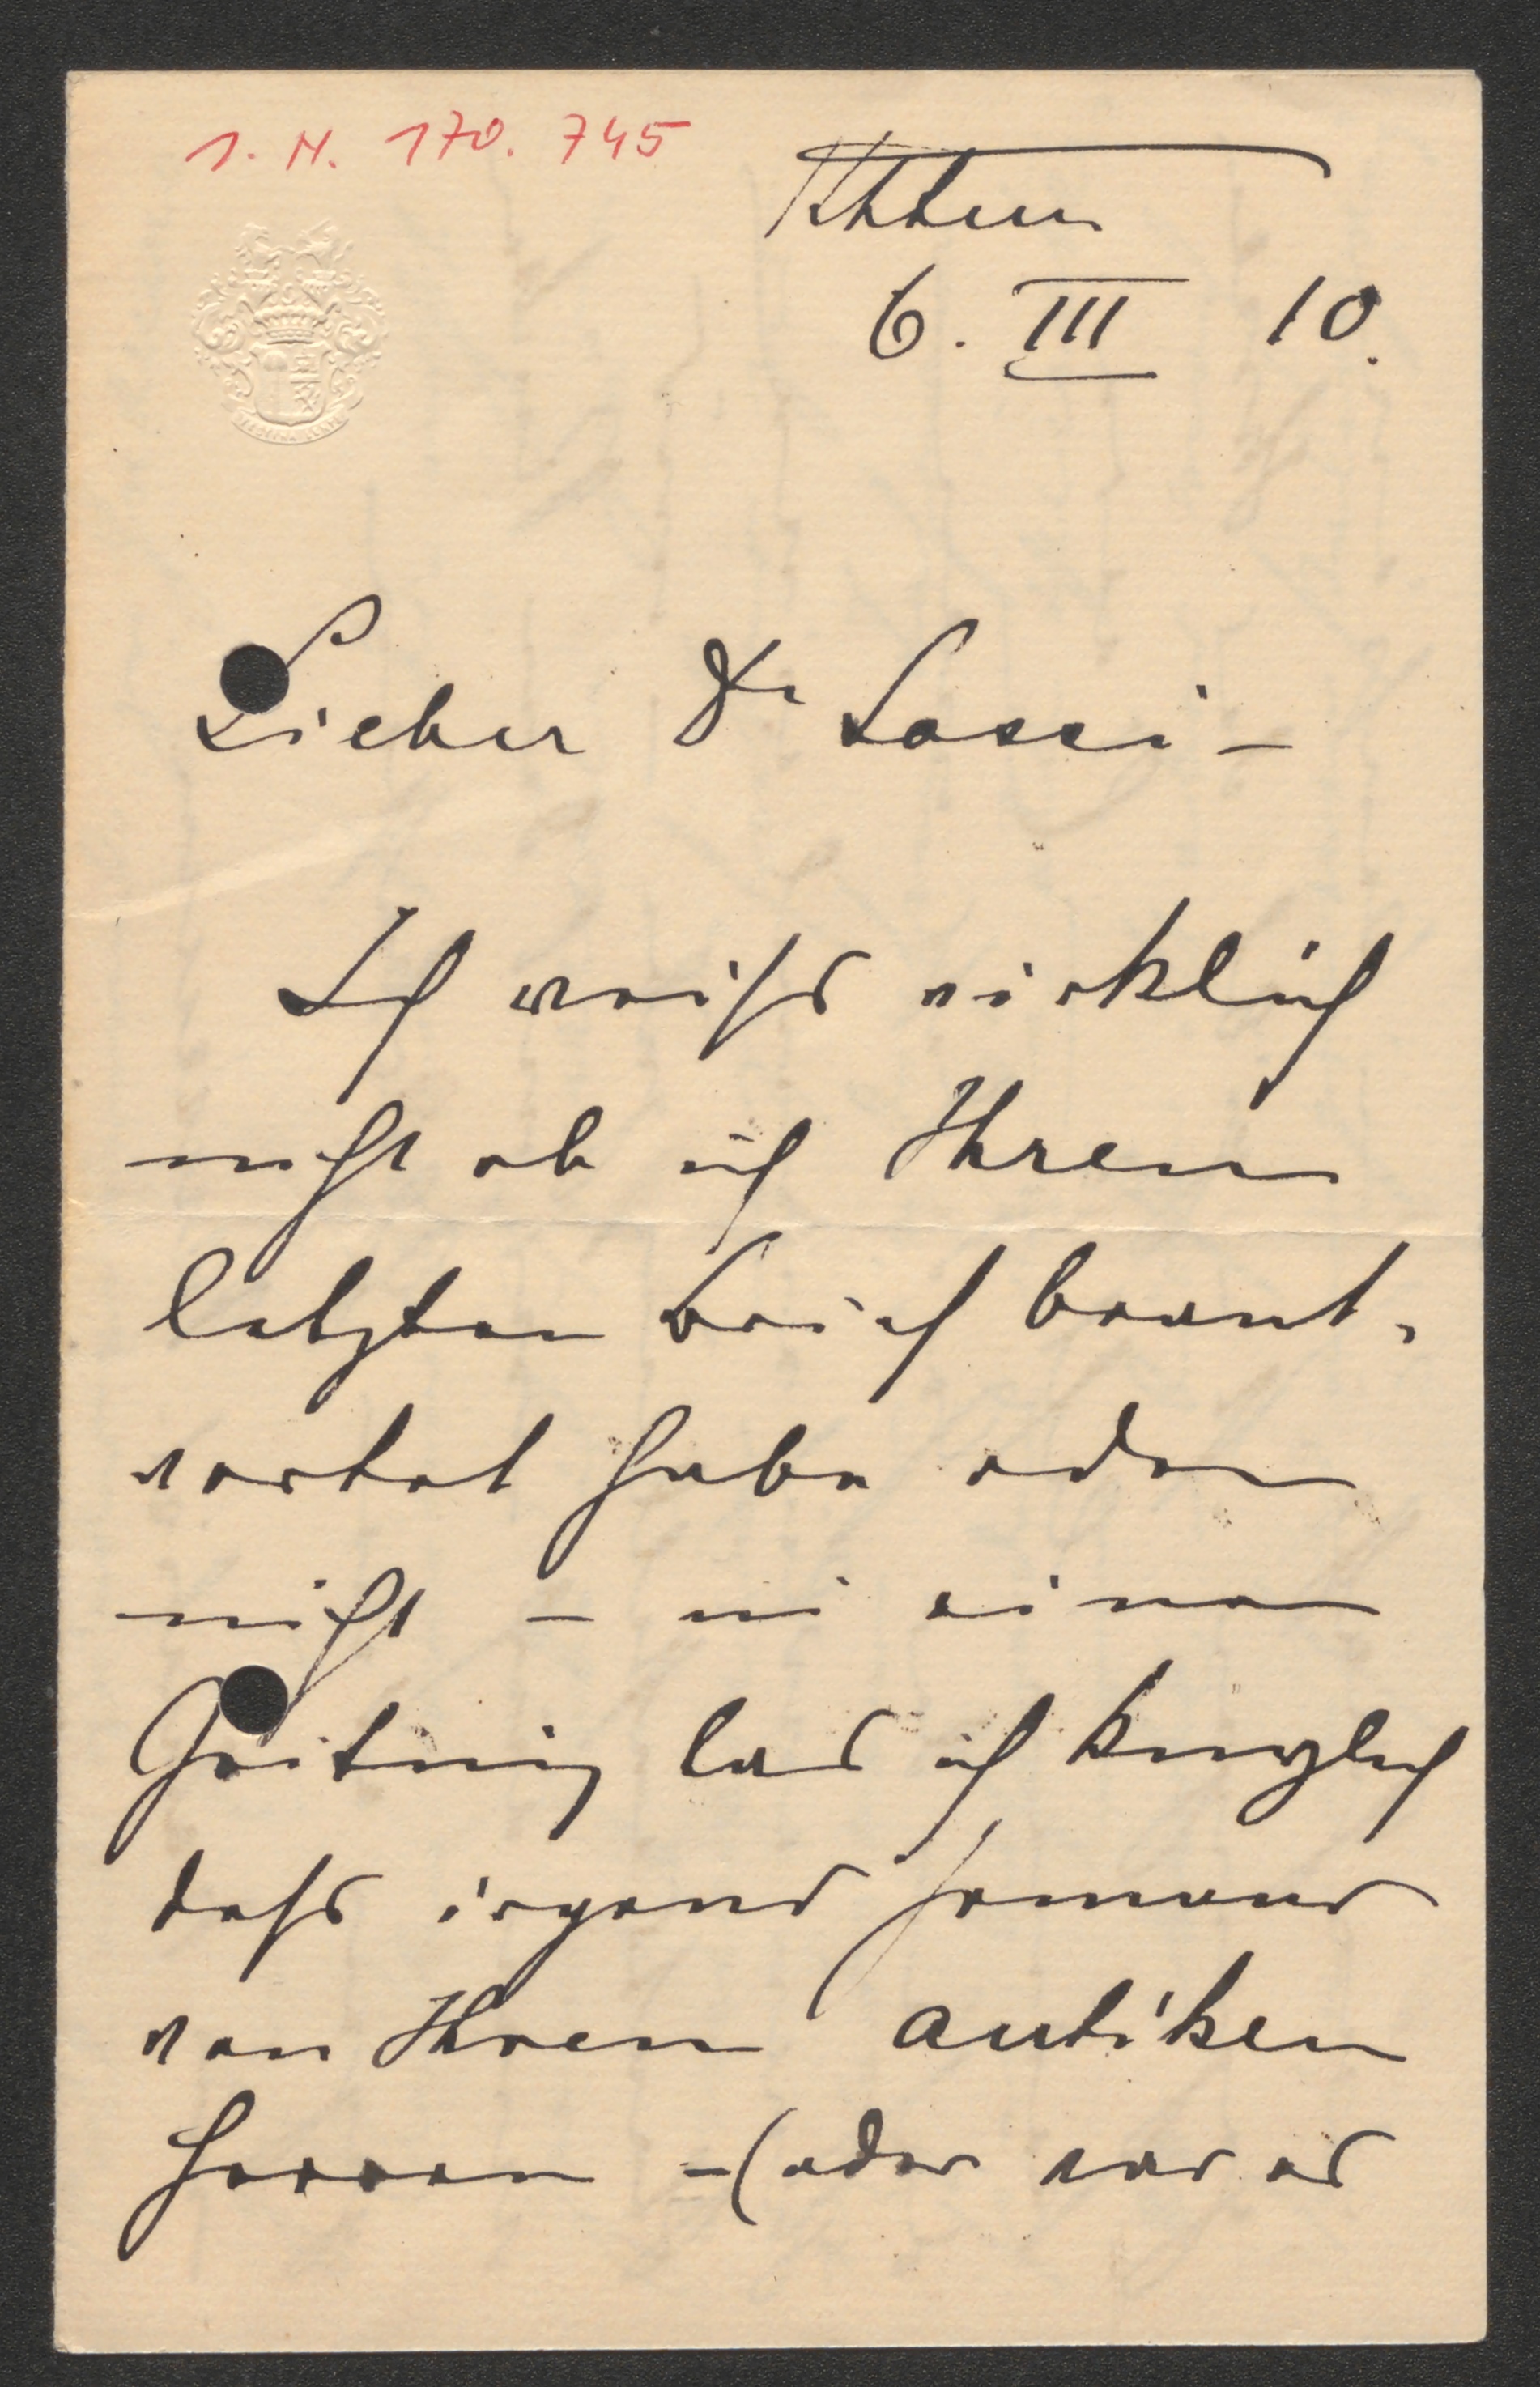 I. N. 170.745
6. III 10.
Lieber Dr Lossi –
Ich weiss wirklich
nicht ob ich Ihren
letzten Brief beant-
wortet habe oder
nicht – in einer
Zeitung las ich kürzlich
dass irgend jemand
von Ihren antiken
Herren – (oder war es